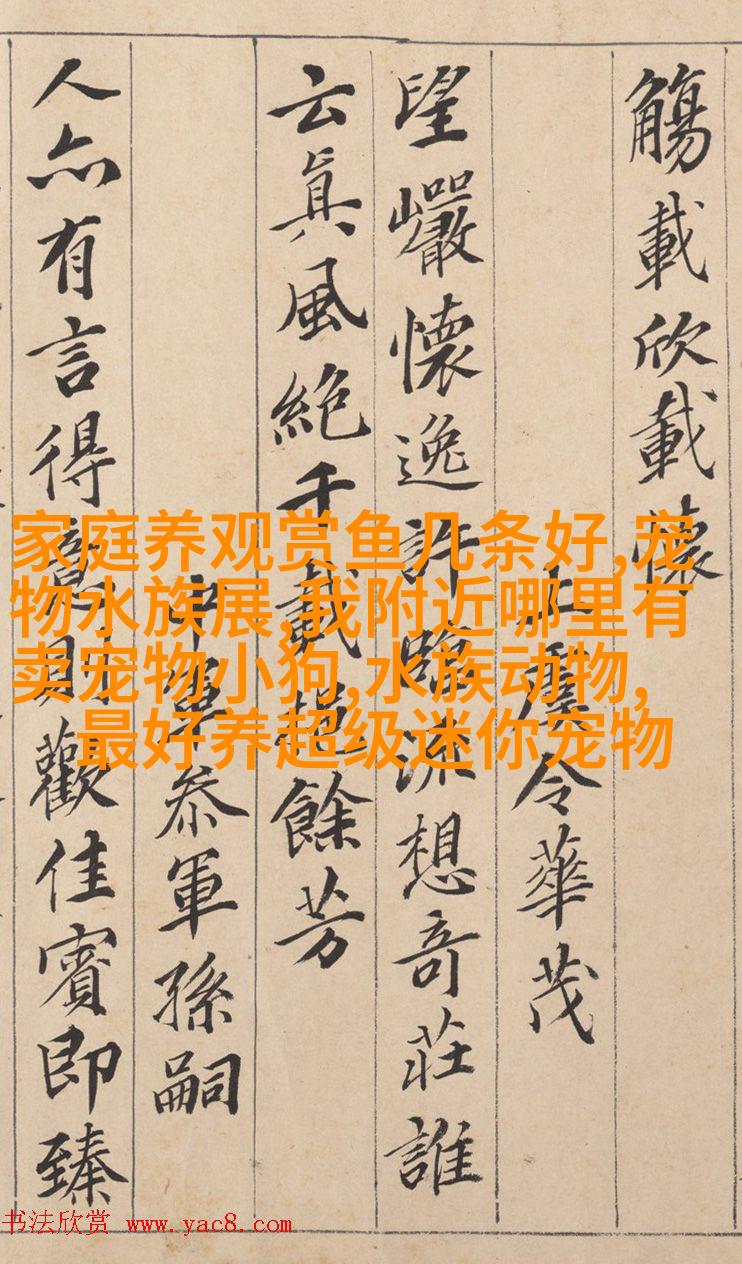 觴載欣載懷
上虞令華茂
望巖懷逸許臨流想奇莊誰
云眞風絶千載挹餘芳
中軍叅軍孫嗣
人亦有言得意則歡佳賓即臻
家庭养观赏鱼几条好,宠
物水族展,我附近哪里有
卖宠物小狗,水族动物,
最好养超级迷你宠物
书法欣赏 www.yac8.com